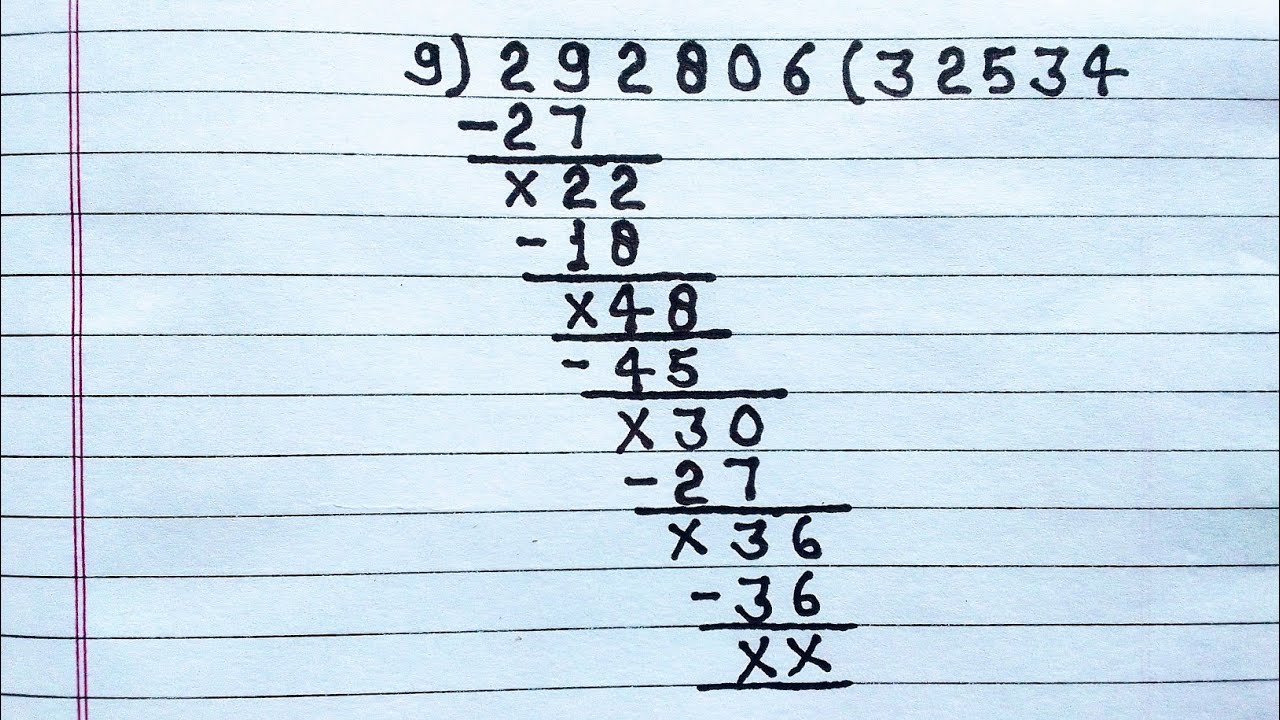 9) 292806 (32534
-27
x22
-18
x48
-45
x30
-27
x36
-36
xx